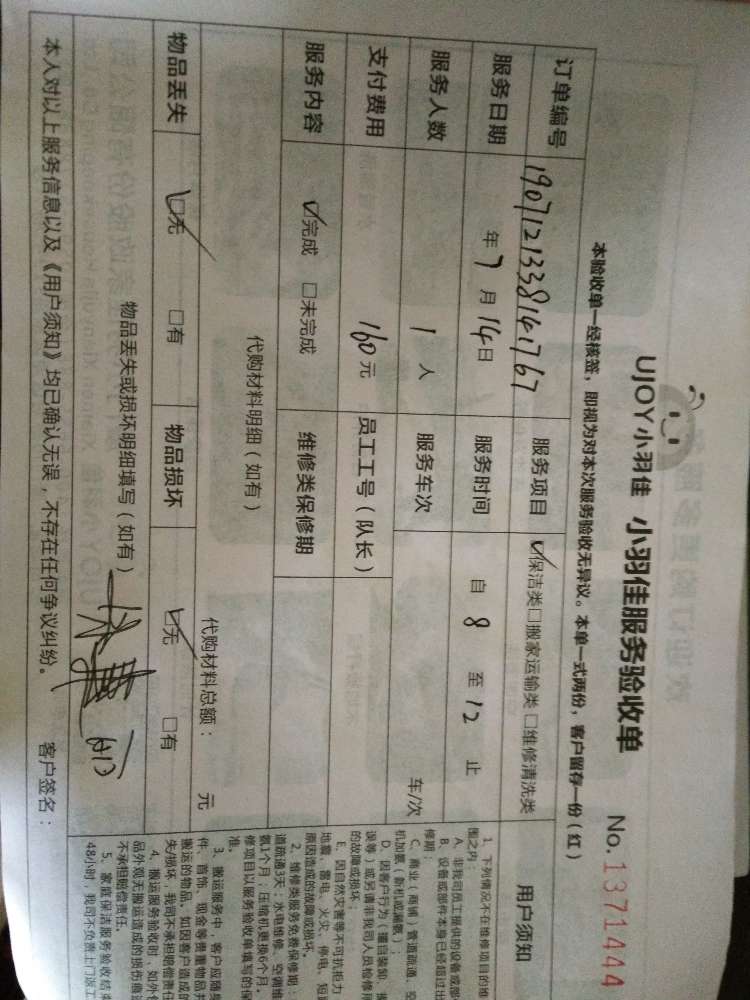 UJOY小羽佳 小羽佳服务验收单 No.1371444
本验收单一经核签，即视为对本次服务验收无异议。本单一式两份，客户留存一份（红）
订单编号 1907121338141767 服务项目 ☑保洁类□搬家运输类□维修清洗类 用户须知
服务日期 年7月14日 服务时间 自 8 至 12 止
服务人数 1 人 服务车次 车/次
支付费用 160元 员工工号（队长）
服务内容 ☑完成 □未完成 维修类保修期
代购材料明细（如有）
代购材料总额： 元
物品丢失 ☑无 □有 物品损坏 ☑无 □有
物品丢失或损坏明细填写（如有）
本人对以上服务信息以及《用户须知》均已确认无误，不存在任何争议纠纷。 客户签名：
1、下列情况不在维修项目的维
围之内：
A、非我司员工提供的设备或部
B、设备或部件本身已经超过出
修期；
C、商业（商铺）管道疏通、空
机加氨（新机或漏氨）；
D、因客户行为（擅自装卸、误
误等）或另请非我司人员检修所
的故障或损坏；
E、因自然灾害等不可抗拒力
地震、雷电、火灾、停电、短
原因造成的故障或损坏。
2、维修类服务免费保修期：
道疏通3天；水电维修、空调维
氨1个月；压缩机更换6个月。
修项目以服务验收单填写的保
准。
3、搬运服务中，客户应随身
件、首饰、现金等贵重物品并
搬运的物品，如因客户造成的
失/损坏，我司不承担赔偿责任
4、搬运服务验收时，如外包
品外观无搬运造成的损伤痕迹
不承担赔偿责任。
5、家庭保洁服务验收结束
48小时，我司不负责上门返工